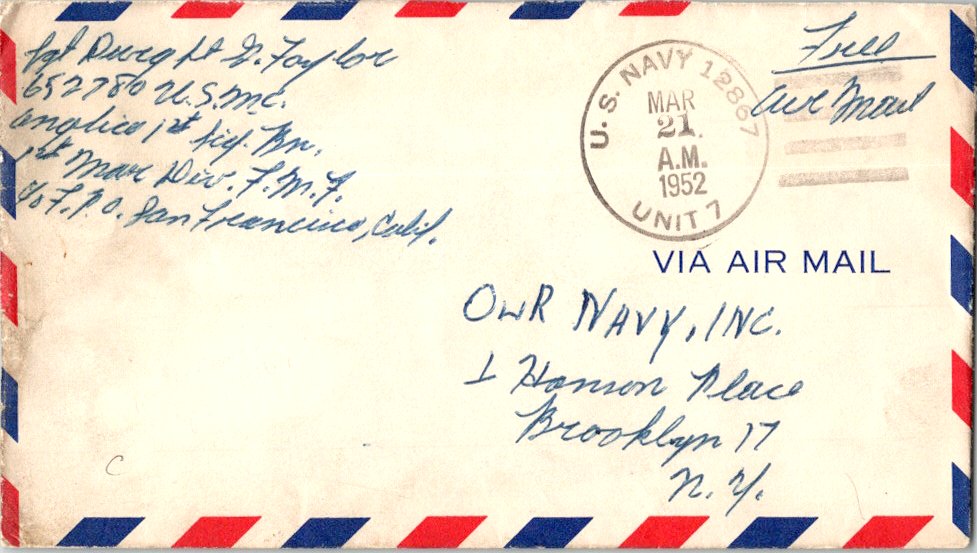 Sgt Dwight G. Taylor
652780 U.S.M.C.
Anglico 1st Sig. Bn.
1st Mar Div. F.M.F.
c/o F.P.O. San Francisco, Calif.
Free
Air Mail
U.S. NAVY 12867
MAR
21.
A.M.
1952
UNIT 7
VIA AIR MAIL
OUR NAVY, INC.
1 Hanson Place
Brooklyn 17
N.Y.
C